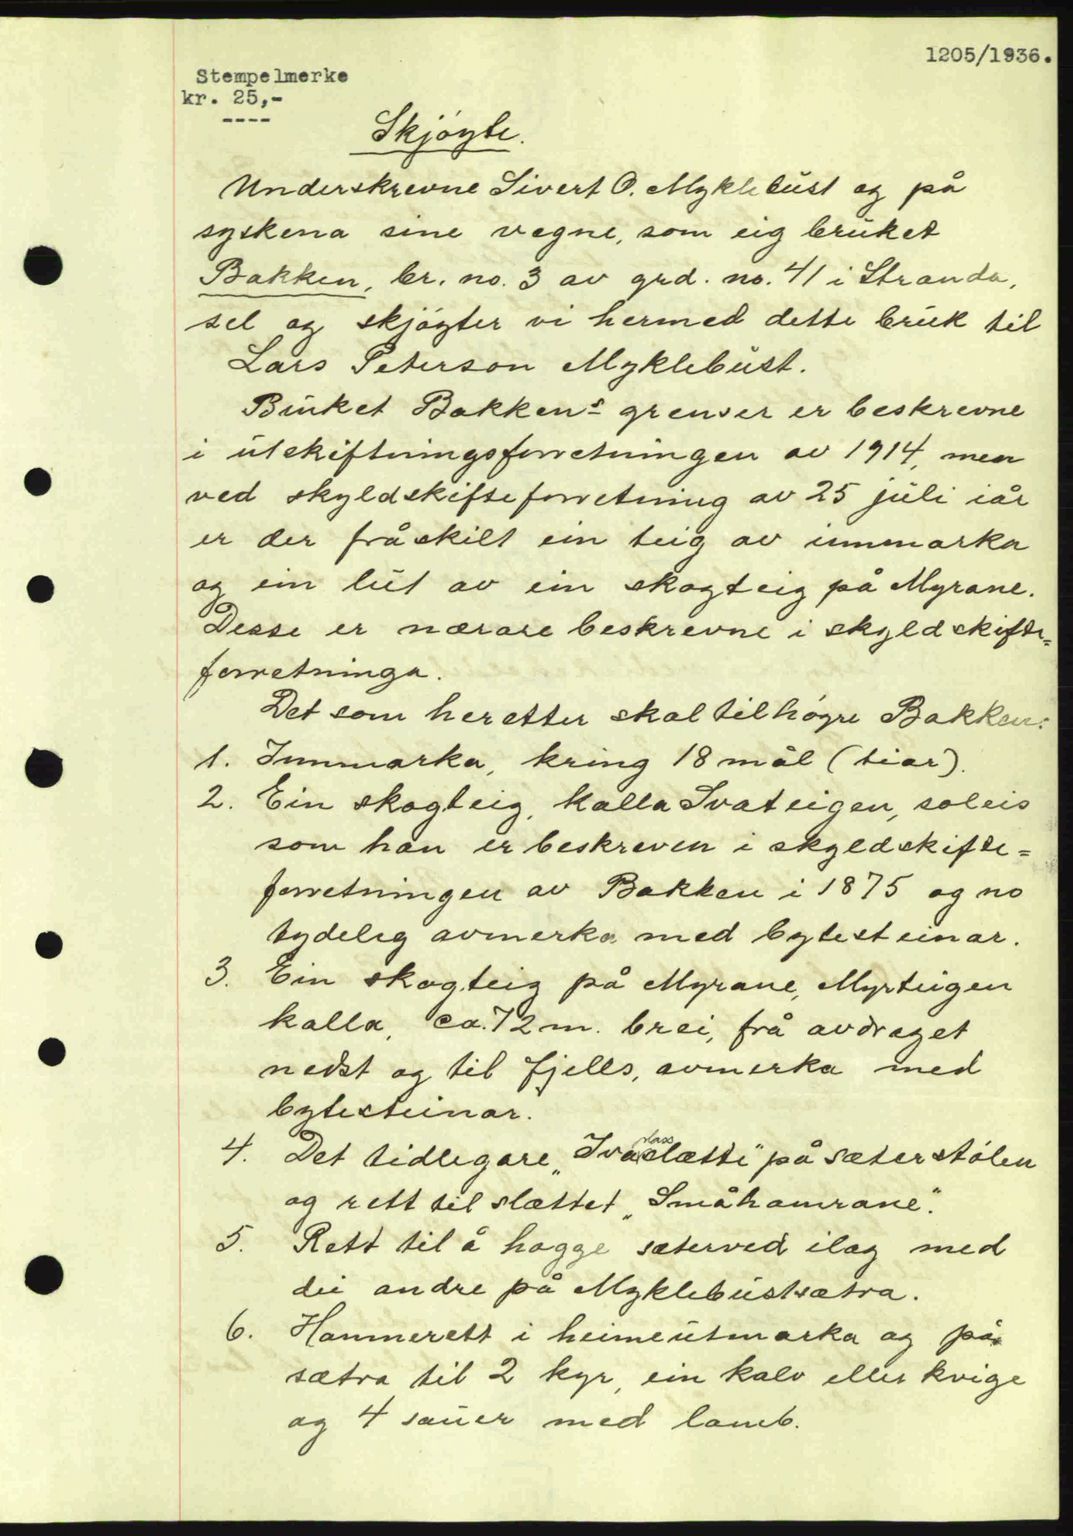 1205/1936.
Stempelmerke
kr. 25,-
----
Skjøyte.
Underskrevne Sivert O. Myklebust og på
syskena sine vegne, som eig bruket
Bakken, br. no. 3 av grd. no. 41 i Stranda,
sel og skjøyter vi hermed dette bruk til
Lars Peterson Myklebust.
Bruket Bakkens grenser er beskrevne
i utskiftningsforretningen av 1914, men
ved skyldskifteforretning av 25 juli iår
er der fråskilt ein teig av innmarka
og ein lut av ein skogteig på Myrane.
Desse er nærare beskrevne i skyldskifte=
forretninga.
Det som heretter skal tilhøyre Bakken:
1. Innmarka, kring 18 mål (tiar).
2. Ein skogteig, kalla Svateigen, soleis
som han er beskreven i skyldskifte=
forretningen av Bakken i 1875 og no
tydeleg avmerka med bytesteinar.
3. Ein skogteig på Myrane, Myrteigen
kalla, ca. 72 m. brei, frå avdraget
nedst og til fjells, avmerka med
bytesteinar.
4. Det tidlegare „Ivaslætte" på sæterstølen
og rett til slættet „Småhamrane".
5. Rett til å hogge sæterved ilag med
dei andre på Myklebustsætra.
6. Hamnerett i heimeutmarka og på
sætra til 2 kyr, ein kalv eller kvige
og 4 sauer med lamb.